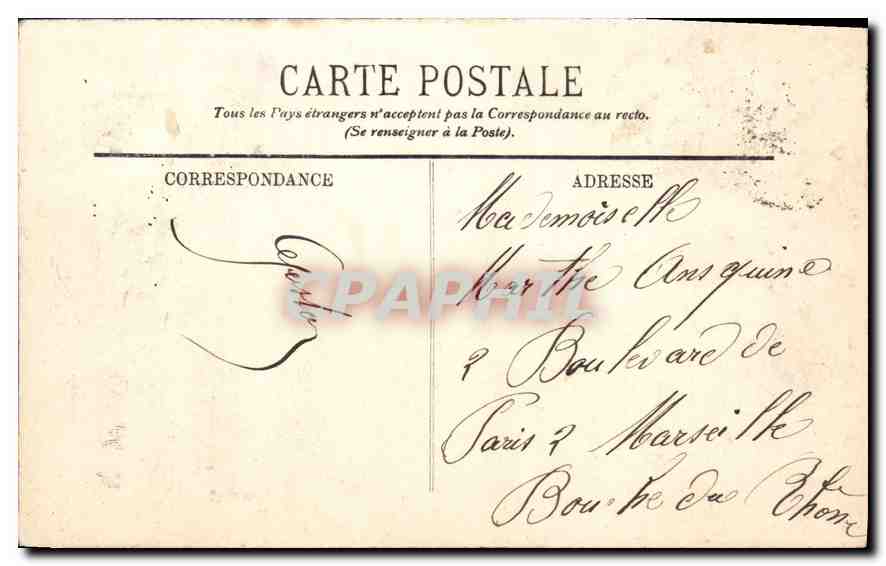 CARTE POSTALE
Tous les Pays étrangers n'acceptent pas la Correspondance au recto.
(Se renseigner à la Poste).
CORRESPONDANCE
ADRESSE
Mademoiselle
Marthe Ansquine
2 Boulevard de
Paris 2 Marseille
Bouche du Rhone
CPAPHIL